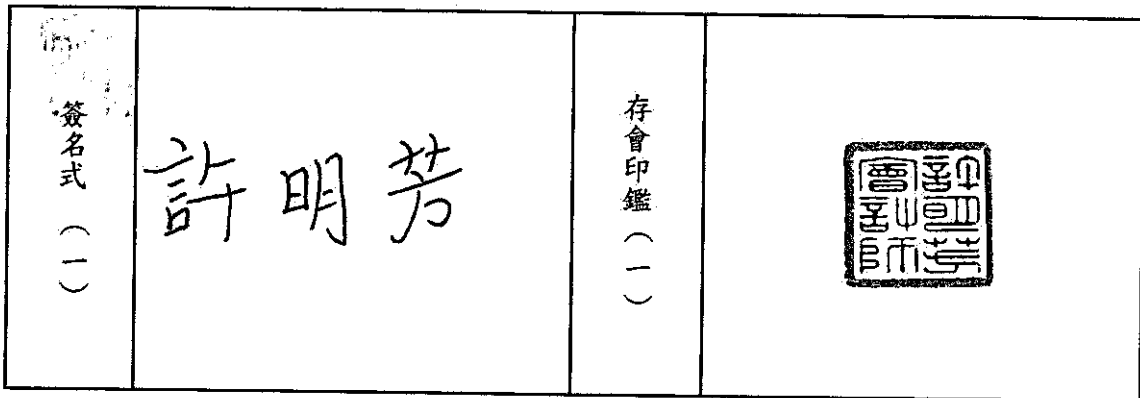 簽名式（一）
許明芳
存會印鑑（一）
許明芳
會計師